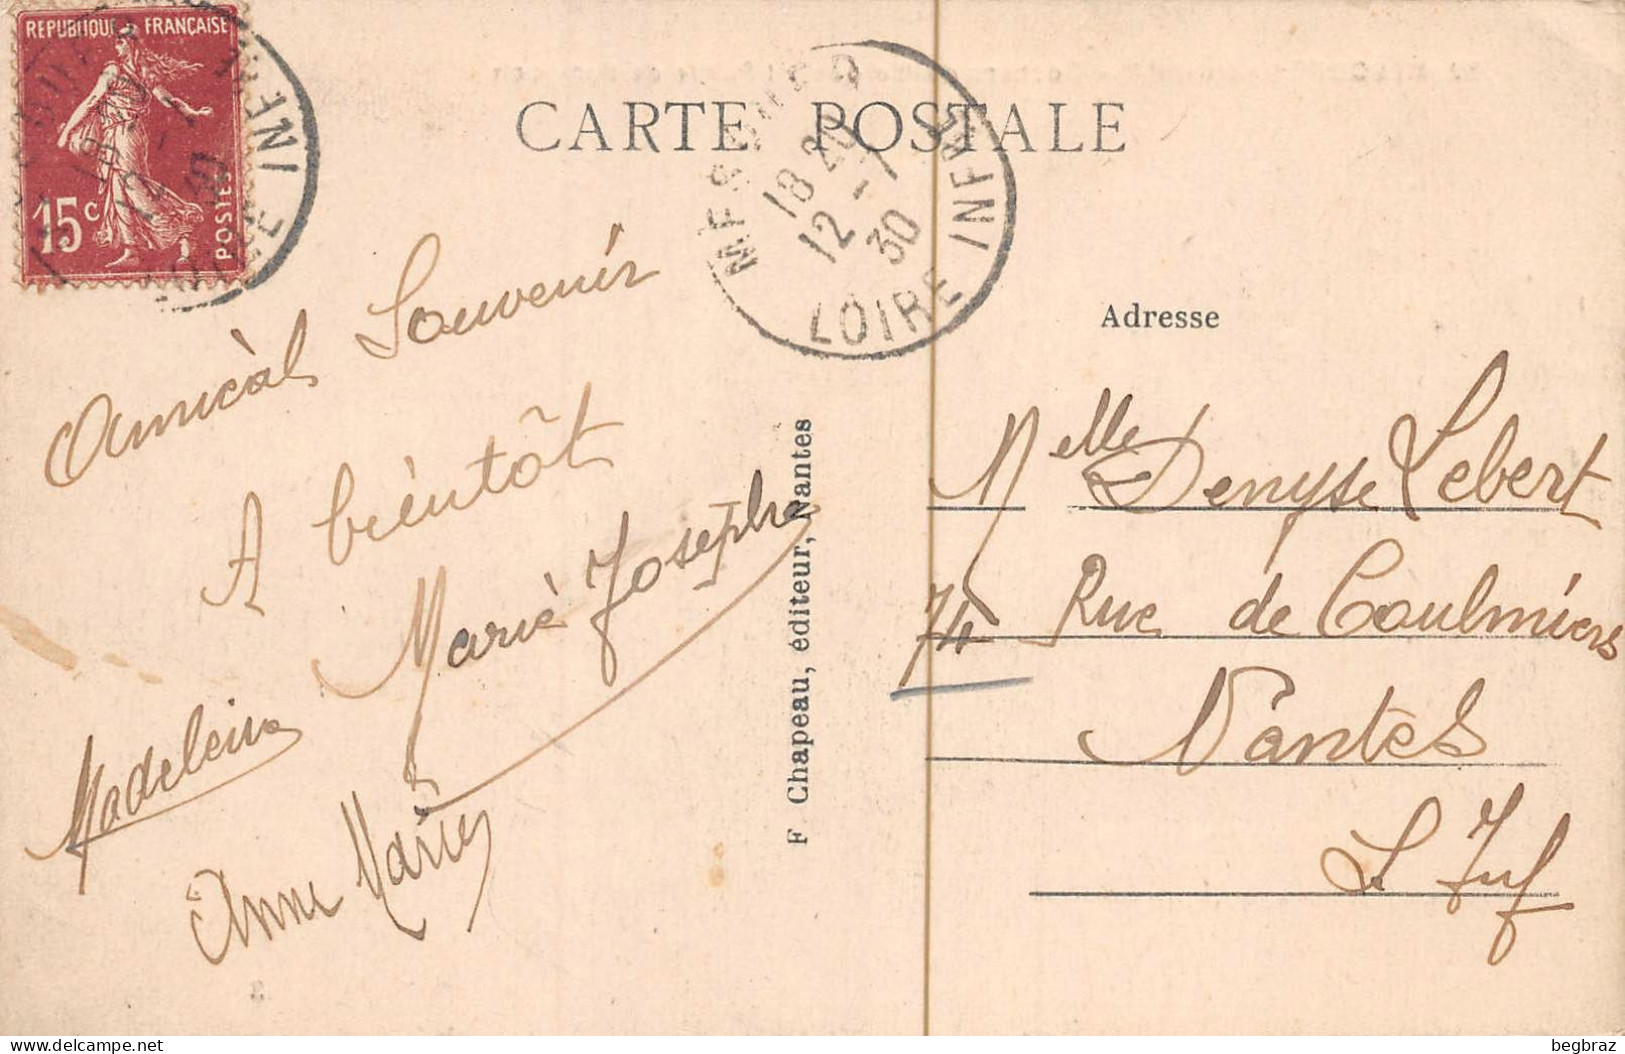 REPUBLIQUE FRANÇAISE
15c
POSTES
CARTE POSTALE
MESQUER
18 20
12 - 7
30
LOIRE INFRE
Amical Souvenir
A bièntôt
Marie Josephe
Madeleine
Anne Marie
F Chapeau, éditeur, Nantes
Adresse
Melle Denyse Lebert
74 Rue de Coulmiers
Nantes
L Inf
begbraz